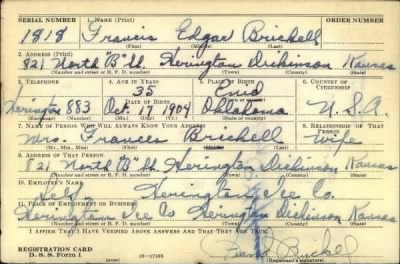 SERIAL NUMBER 1. NAME (Print) ORDER NUMBER
1818 Francis Edgar Brickell
(First) (Middle) (Last)
2. ADDRESS (Print)
821 North "B" St. Herington Dickinson Kansas
(Number and street or R. F. D. number) (Town) (County) (State)
3. TELEPHONE 4. AGE IN YEARS 5. PLACE OF BIRTH 6. COUNTRY OF CITIZENSHIP
35 Enid
Herington 883 DATE OF BIRTH Oklahoma U.S.A.
Oct. 17 1904
7. NAME OF PERSON WHO WILL ALWAYS KNOW YOUR ADDRESS 8. RELATIONSHIP OF THAT PERSON
Mrs. Frances Brickell Wife
(Mr., Mrs., Miss) (First) (Middle) (Last)
9. ADDRESS OF THAT PERSON
821 North "B" St. Herington Dickinson Kansas
(Number and street or R. F. D. number) (Town) (County) (State)
10. EMPLOYER'S NAME
Self, Herington Ice Co.
11. PLACE OF EMPLOYMENT OR BUSINESS
Herington Ice Co Herington Dickinson Kansas
(Number and street or R. F. D. number) (Town) (County) (State)
I AFFIRM THAT I HAVE VERIFIED ABOVE ANSWERS AND THAT THEY ARE TRUE.
REGISTRATION CARD
D. S. S. Form 1 16—17105 Brickell
(Registrant's signature)